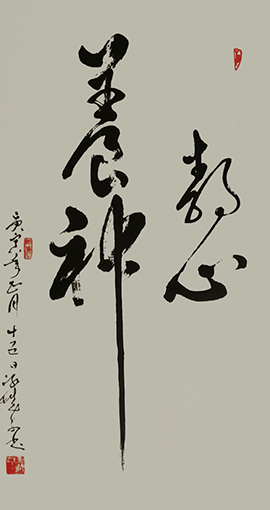 静心
養神
庚寅年正月十五日